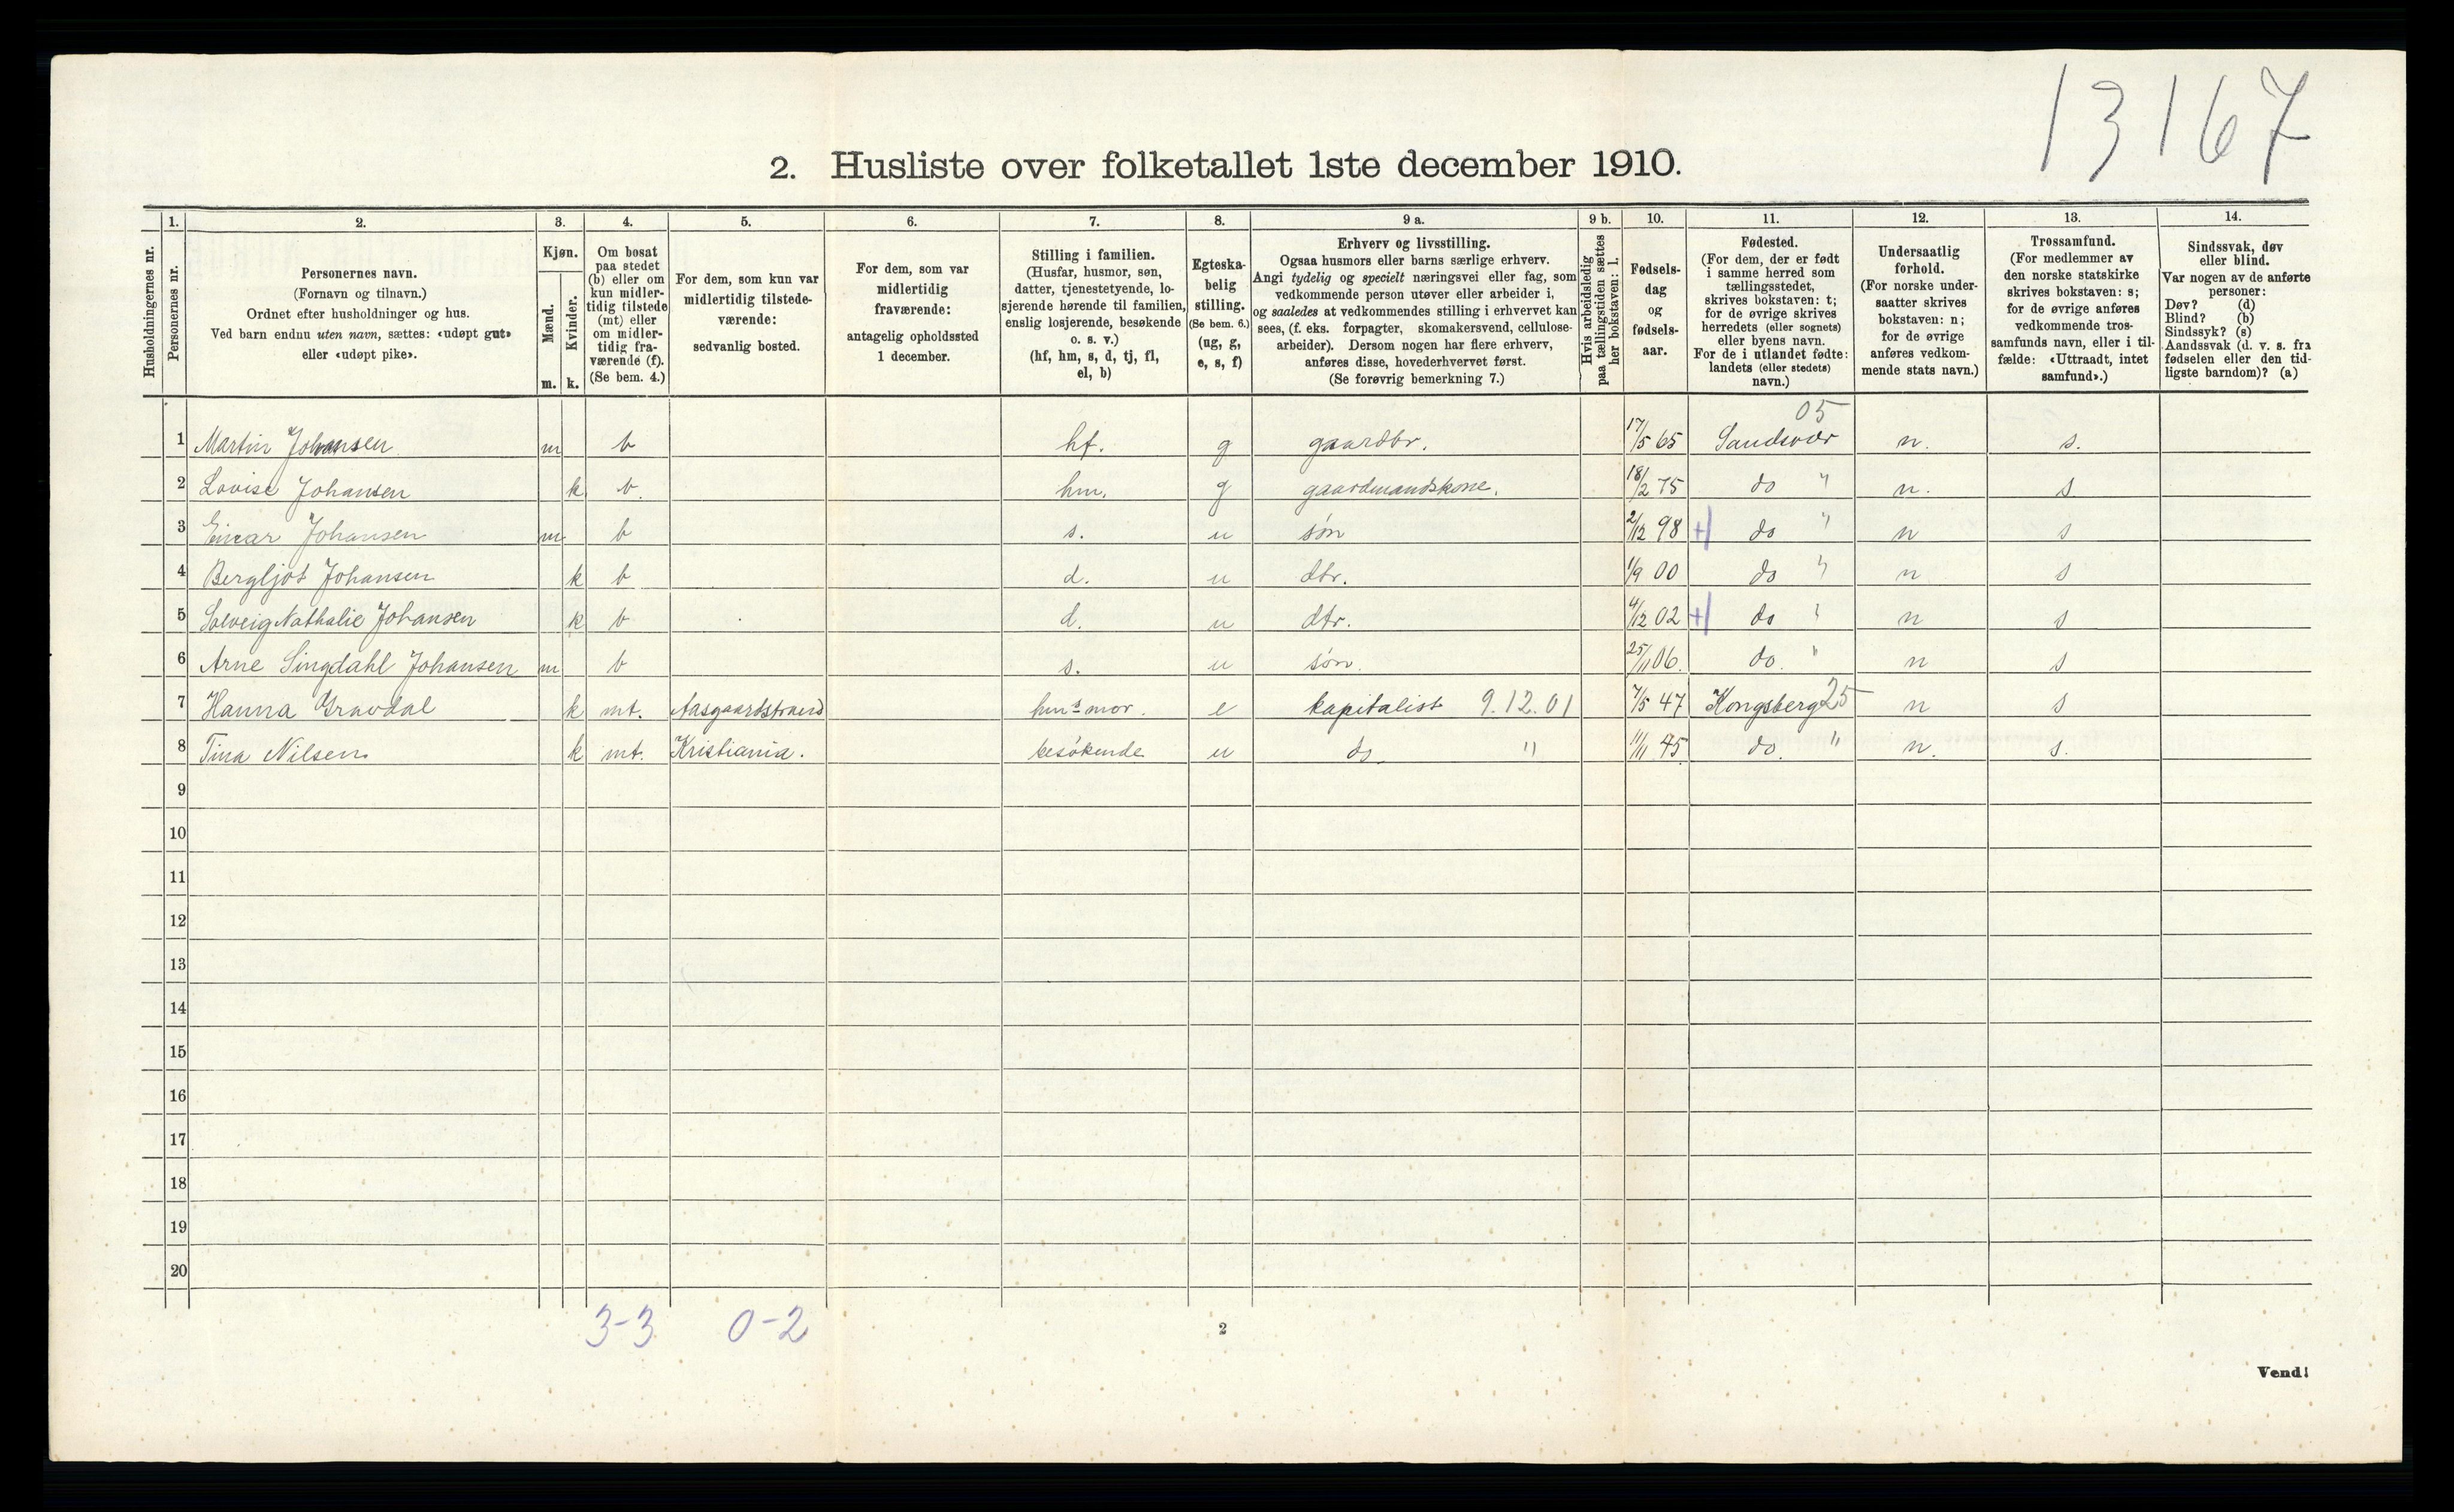 13167
2. Husliste over folketallet 1ste december 1910.
1. 2. 3. 4. 5. 6. 7. 8. 9 a. 9 b. 10. 11. 12. 13. 14.
Husholdningernes nr.
Personernes nr.
Personernes navn.
(Fornavn og tilnavn.)
Ordnet efter husholdninger og hus.
Ved barn endnu uten navn, sættes: «udøpt gut»
eller «udøpt pike».
Kjøn.
Mænd.
Kvinder.
m. k.
Om bosat
paa stedet
(b) eller om
kun midler-
tidig tilstede
(mt) eller
om midler-
tidig fra-
værende (f).
(Se bem. 4.)
For dem, som kun var
midlertidig tilstede-
værende:
sedvanlig bosted.
For dem, som var
midlertidig
fraværende:
antagelig opholdssted
1 december.
Stilling i familien.
(Husfar, husmor, søn,
datter, tjenestetyende, lo-
sjerende hørende til familien,
enslig losjerende, besøkende
o. s. v.)
(hf, hm, s, d, tj, fl,
el, b)
Egteska-
belig
stilling.
(Se bem. 6.)
(ug, g,
e, s, f)
Erhverv og livsstilling.
Ogsaa husmors eller barns særlige erhverv.
Angi tydelig og specielt næringsvei eller fag, som
vedkommende person utøver eller arbeider i,
og saaledes at vedkommendes stilling i erhvervet kan
sees, (f. eks. forpagter, skomakersvend, cellulose-
arbeider). Dersom nogen har flere erhverv,
anføres disse, hovederhvervet først.
(Se forøvrig bemerkning 7.)
Hvis arbeidsledig
paa tællingstiden sættes
her bokstaven: l.
Fødsels-
dag
og
fødsels-
aar.
Fødested.
(For dem, der er født
i samme herred som
tællingsstedet,
skrives bokstaven: t;
for de øvrige skrives
herredets (eller sognets)
eller byens navn.
For de i utlandet fødte:
landets (eller stedets)
navn.)
Undersaatlig
forhold.
(For norske under-
saatter skrives
bokstaven: n;
for de øvrige
anføres vedkom-
mende stats navn.)
Trossamfund.
(For medlemmer av
den norske statskirke
skrives bokstaven: s;
for de øvrige anføres
vedkommende tros-
samfunds navn, eller i til-
fælde: «Uttraadt, intet
samfund».)
Sindssvak, døv
eller blind.
Var nogen av de anførte
personer:
Døv? (d)
Blind? (b)
Sindssyk? (s)
Aandssvak (d. v. s. fra
fødselen eller den tid-
ligste barndom)? (a)
05
1 Martin Johansen m b hf. g gaardbr. 17/5 65 Sandsvær n. s.
2 Lovise Johansen k b. hm. g gaardmandskone. 18/2 75 do " n. s
3 Einar Johansen m b s. u søn 2/12 98 + do " n s
4 Bergljot Johansen k b d. u dtr. 1/9 00 do " n s
5 Solveig Nathalie Johansen k b d. u dtr. 4/12 02 + do " n s
6 Arne Singdahl Johansen m b s. u søn. 25/11 06. do. " n s
7 Hanna Gravdal k mt. Aasgaardstrand hms mor. e kapitalist 9.12.01 7/5 47 Kongsberg 25 n s
8 Tina Nilsen k mt. Kristiania. besøkende u do. " 11/11 45 do. " n. s.
9
10
11
12
13
14
15
16
17
18
19
20
3-3 0-2
2
Vend!